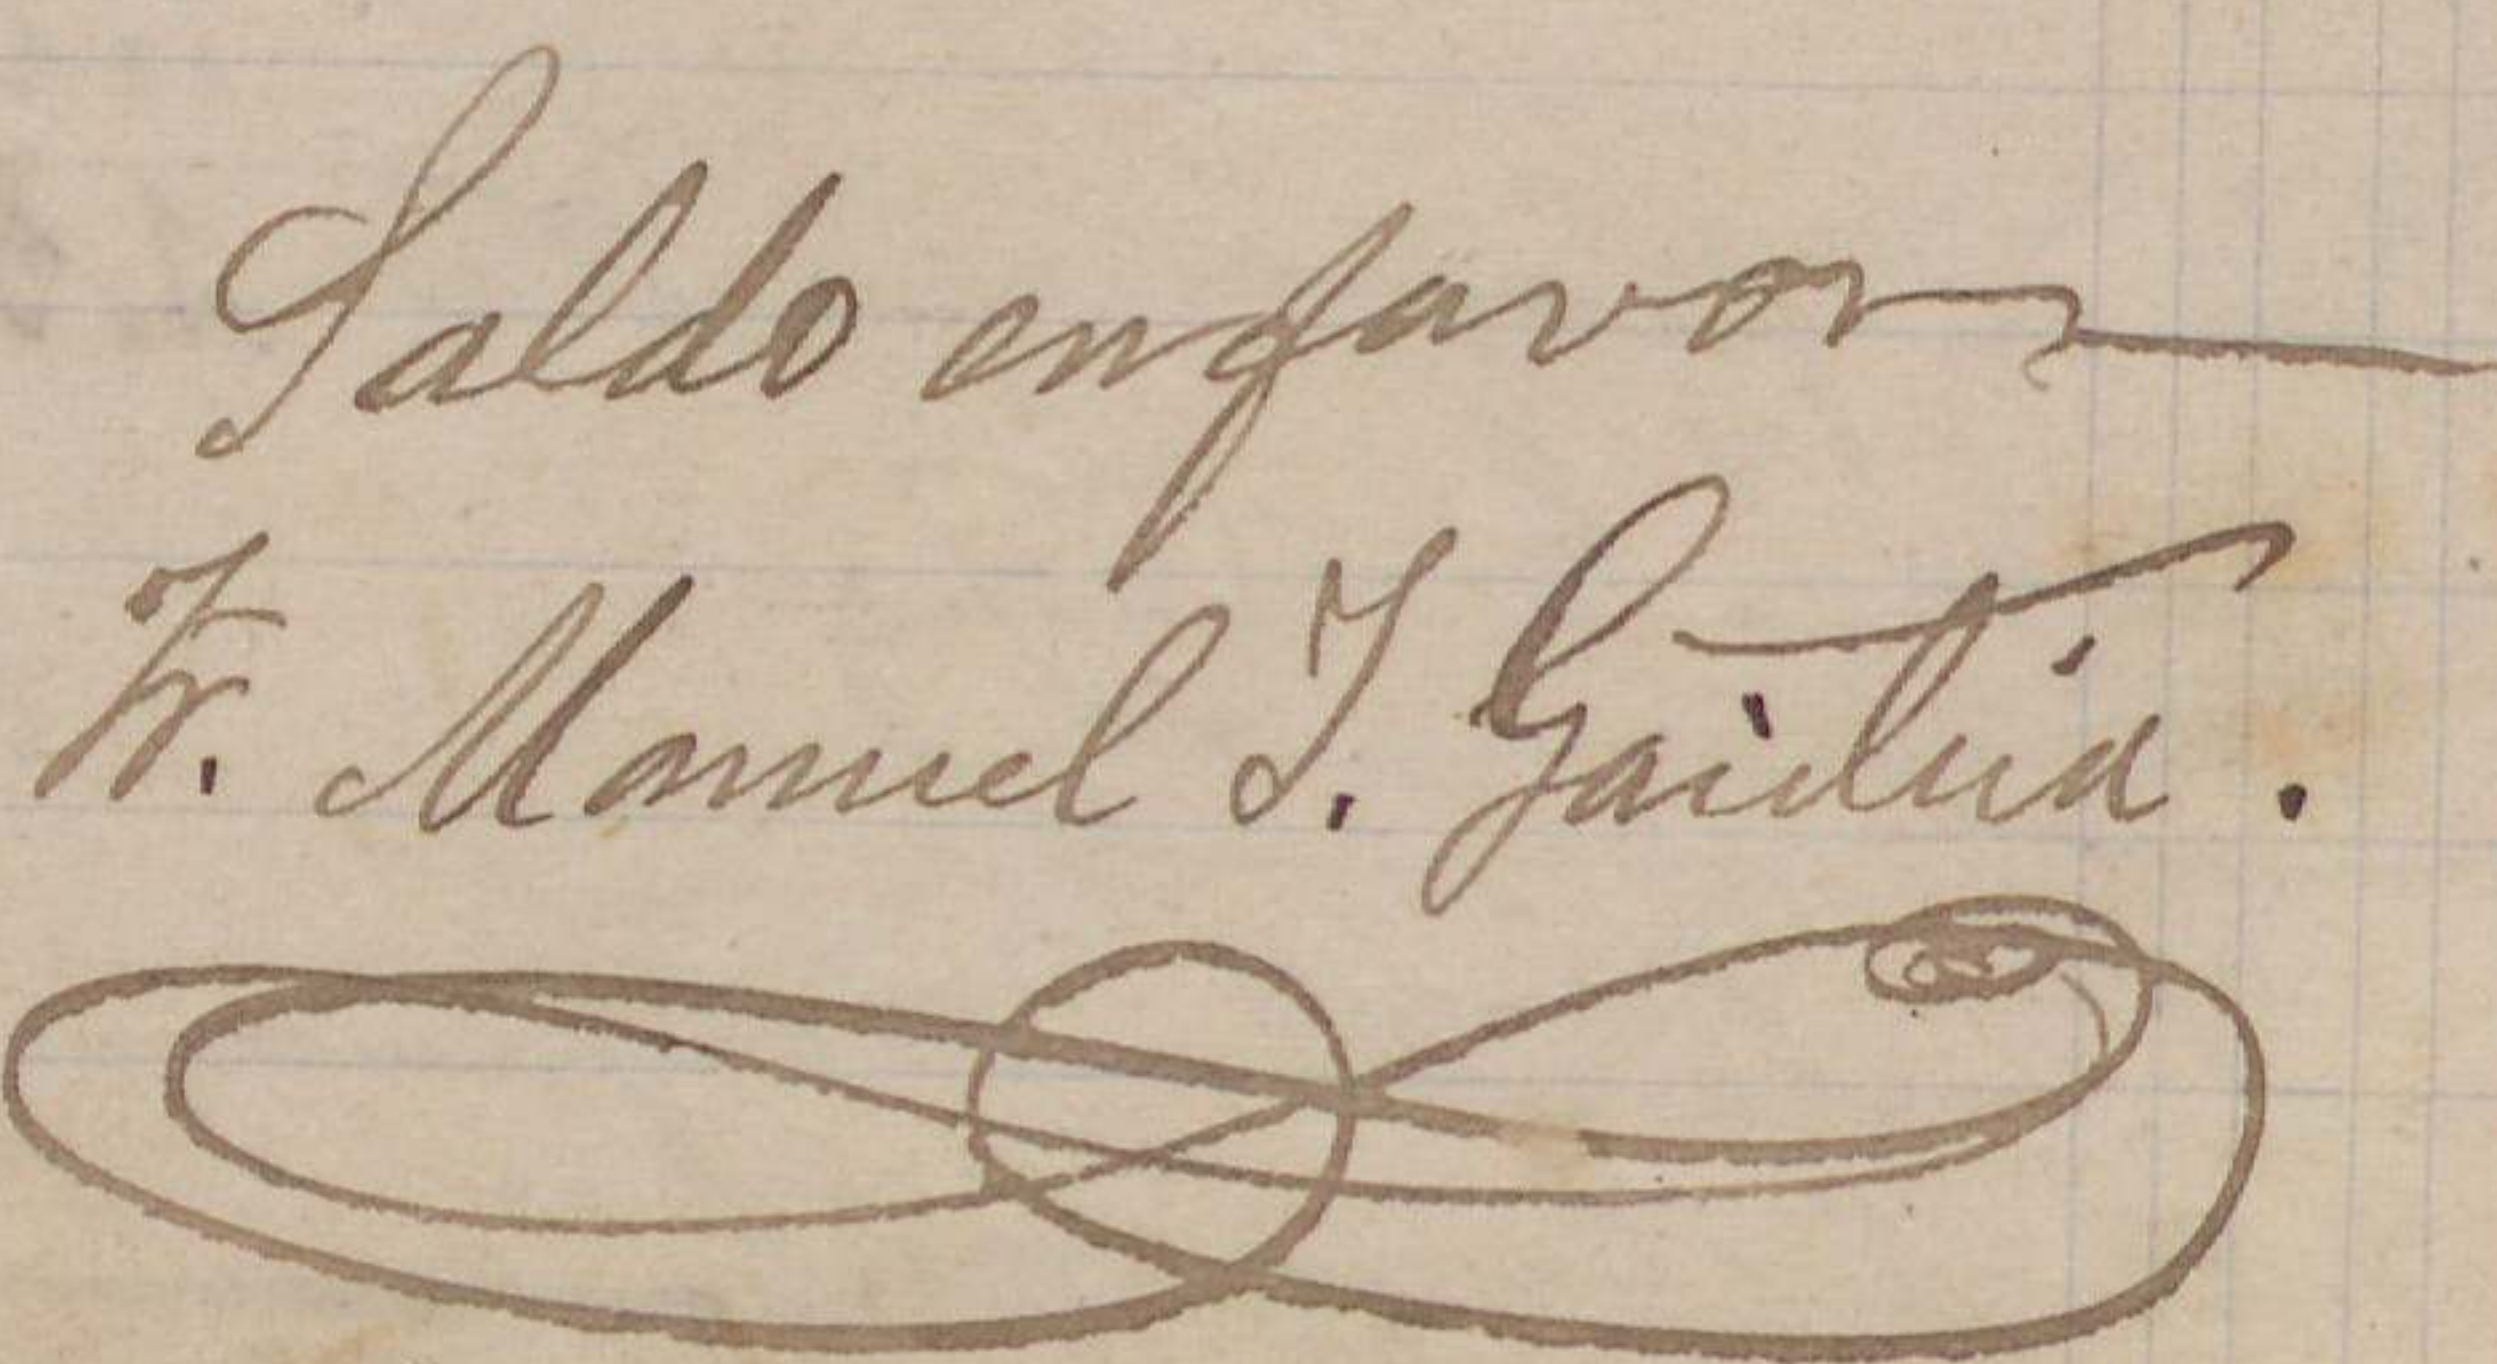 Saldo en favor
Fr. Manuel T. Gaitúa.